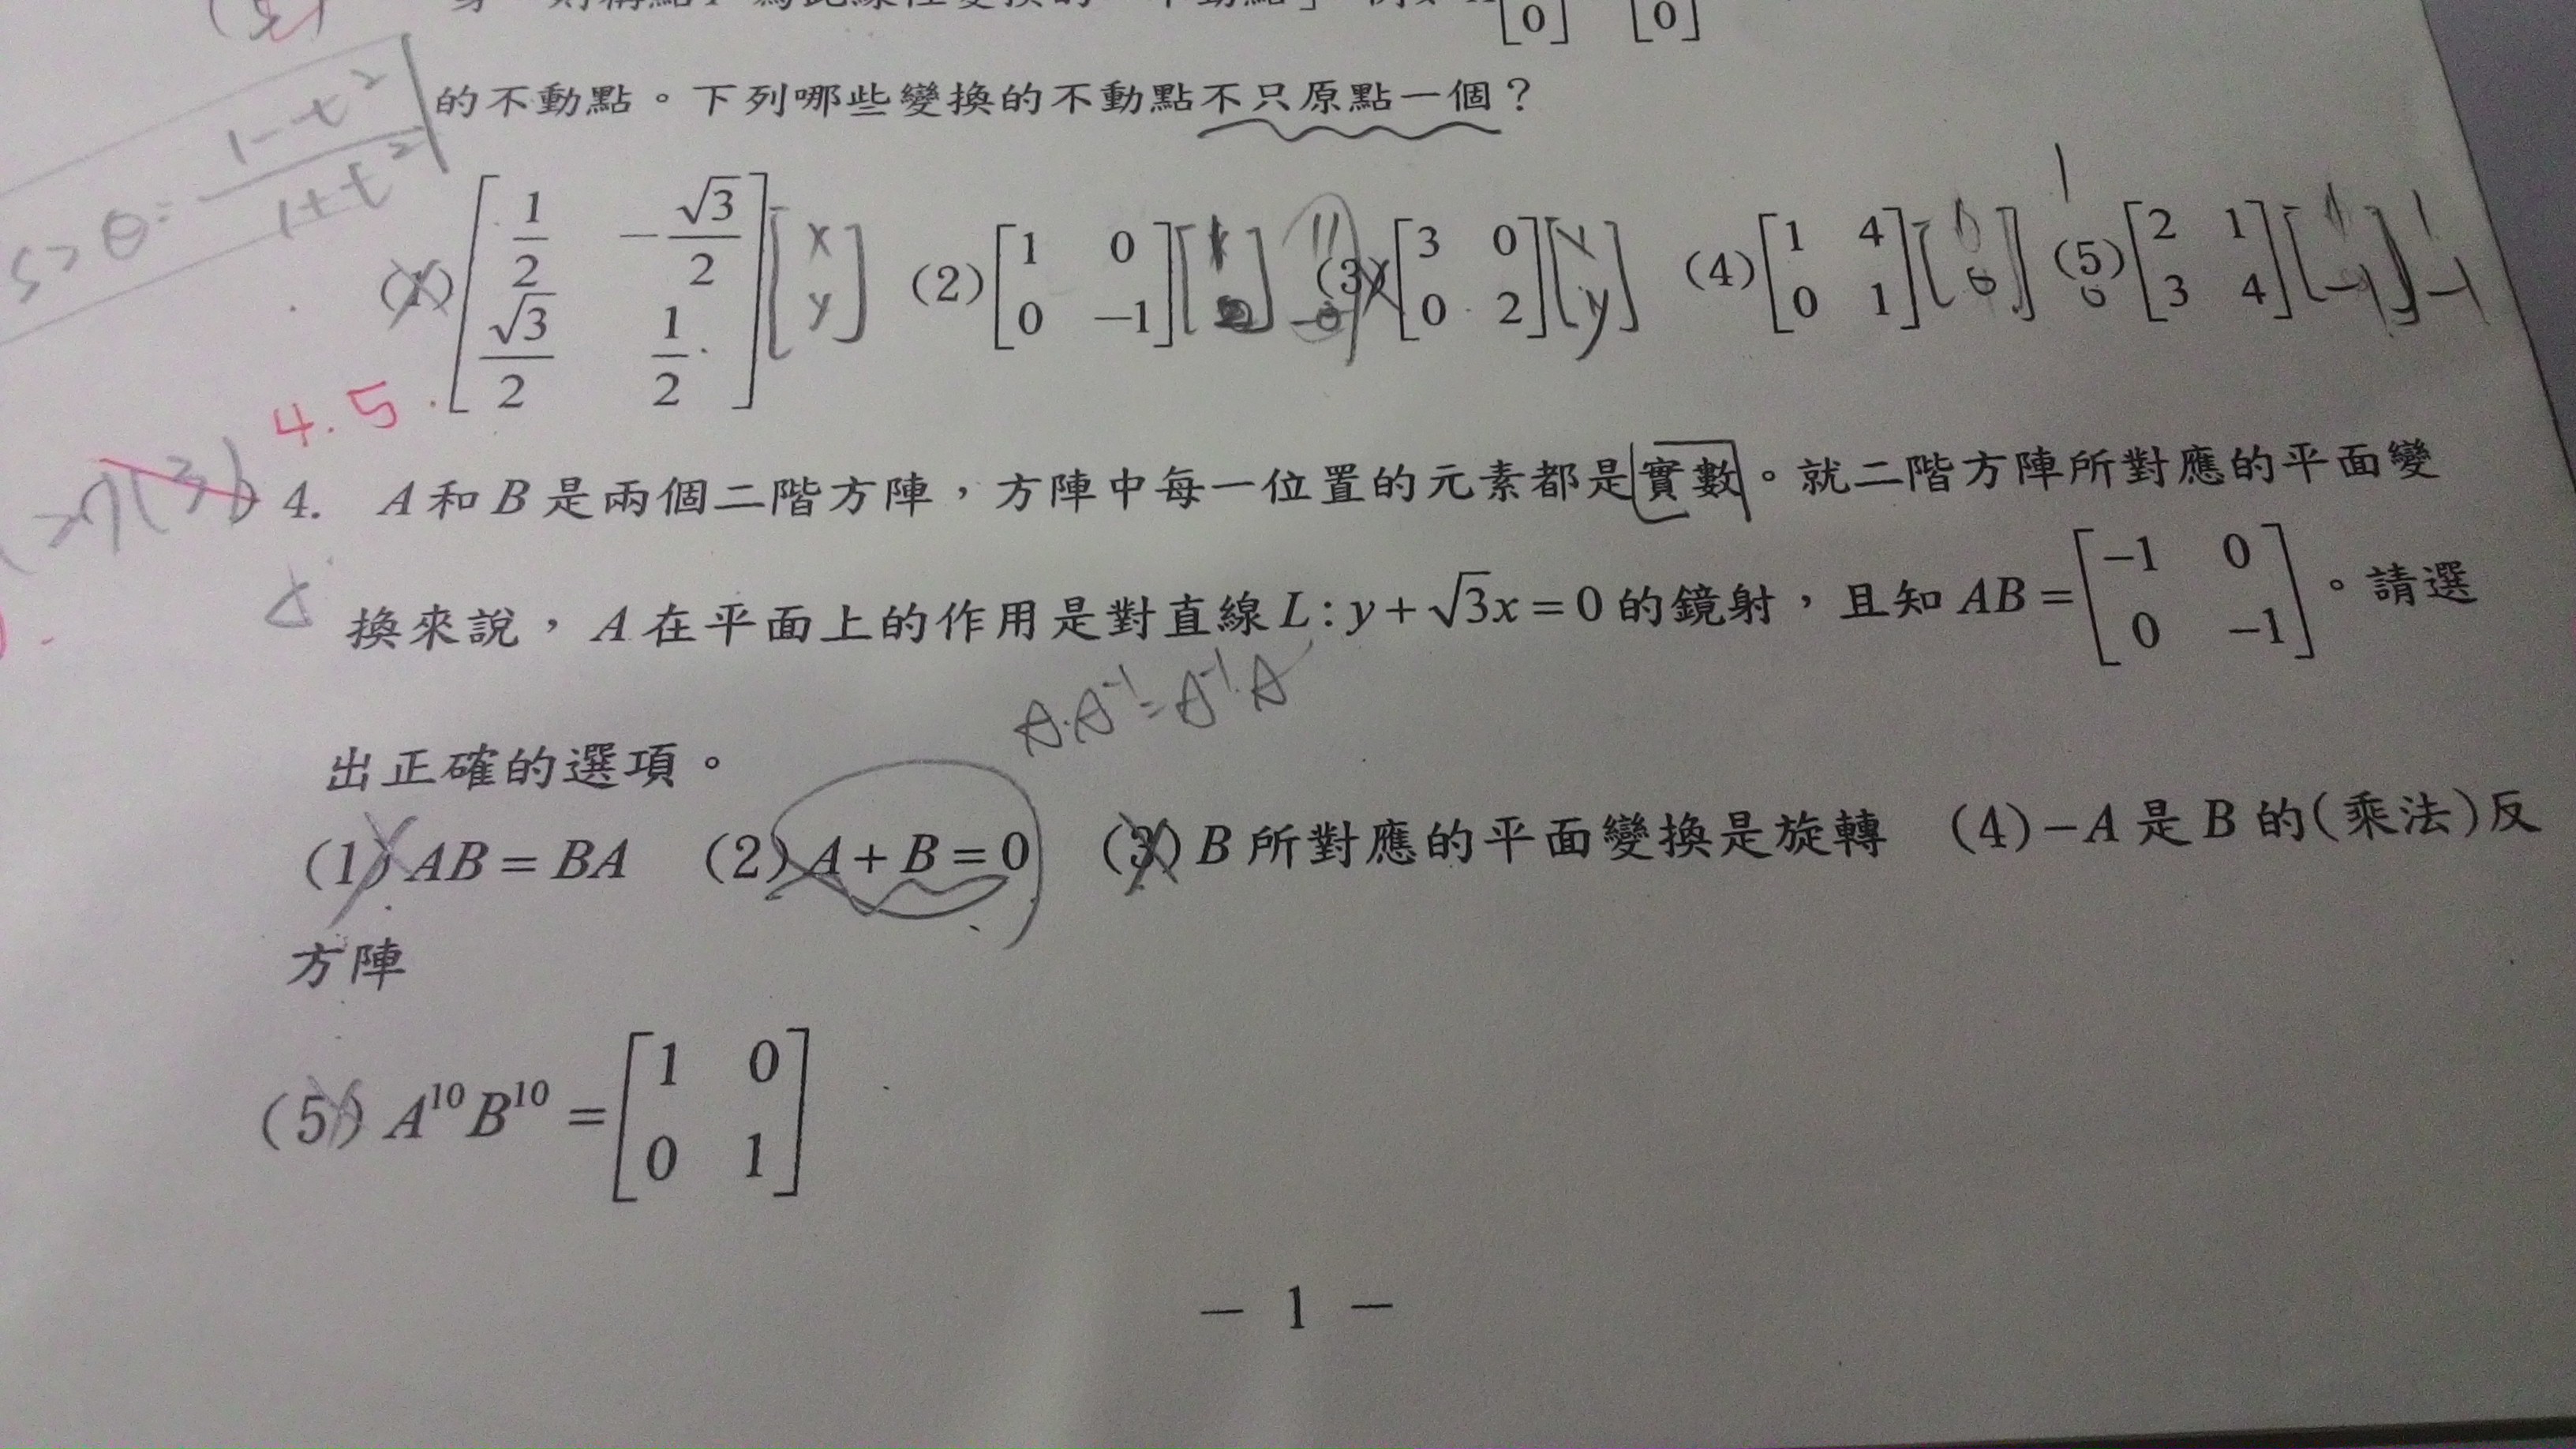 [0] [0]
的不動點。下列哪些變換的不動點不只原點一個？
(1) [1/2 -√3/2; √3/2 1/2] [x; y] (2) [1 0; 0 -1] (3) [3 0; 0 2] (4) [1 4; 0 1] (5) [2 1; 3 4]
1-t²
θ=
1+t²
4.5
4. A和B是兩個二階方陣，方陣中每一位置的元素都是實數。就二階方陣所對應的平面變
換來說，A在平面上的作用是對直線L:y+√3x=0的鏡射，且知AB=[-1 0; 0 -1]。請選
A·A⁻¹=A⁻¹·A
出正確的選項。
(1) AB=BA (2) A+B=0 (3) B所對應的平面變換是旋轉 (4) -A是B的(乘法)反
方陣
(5) A¹⁰B¹⁰=[1 0; 0 1]
- 1 -